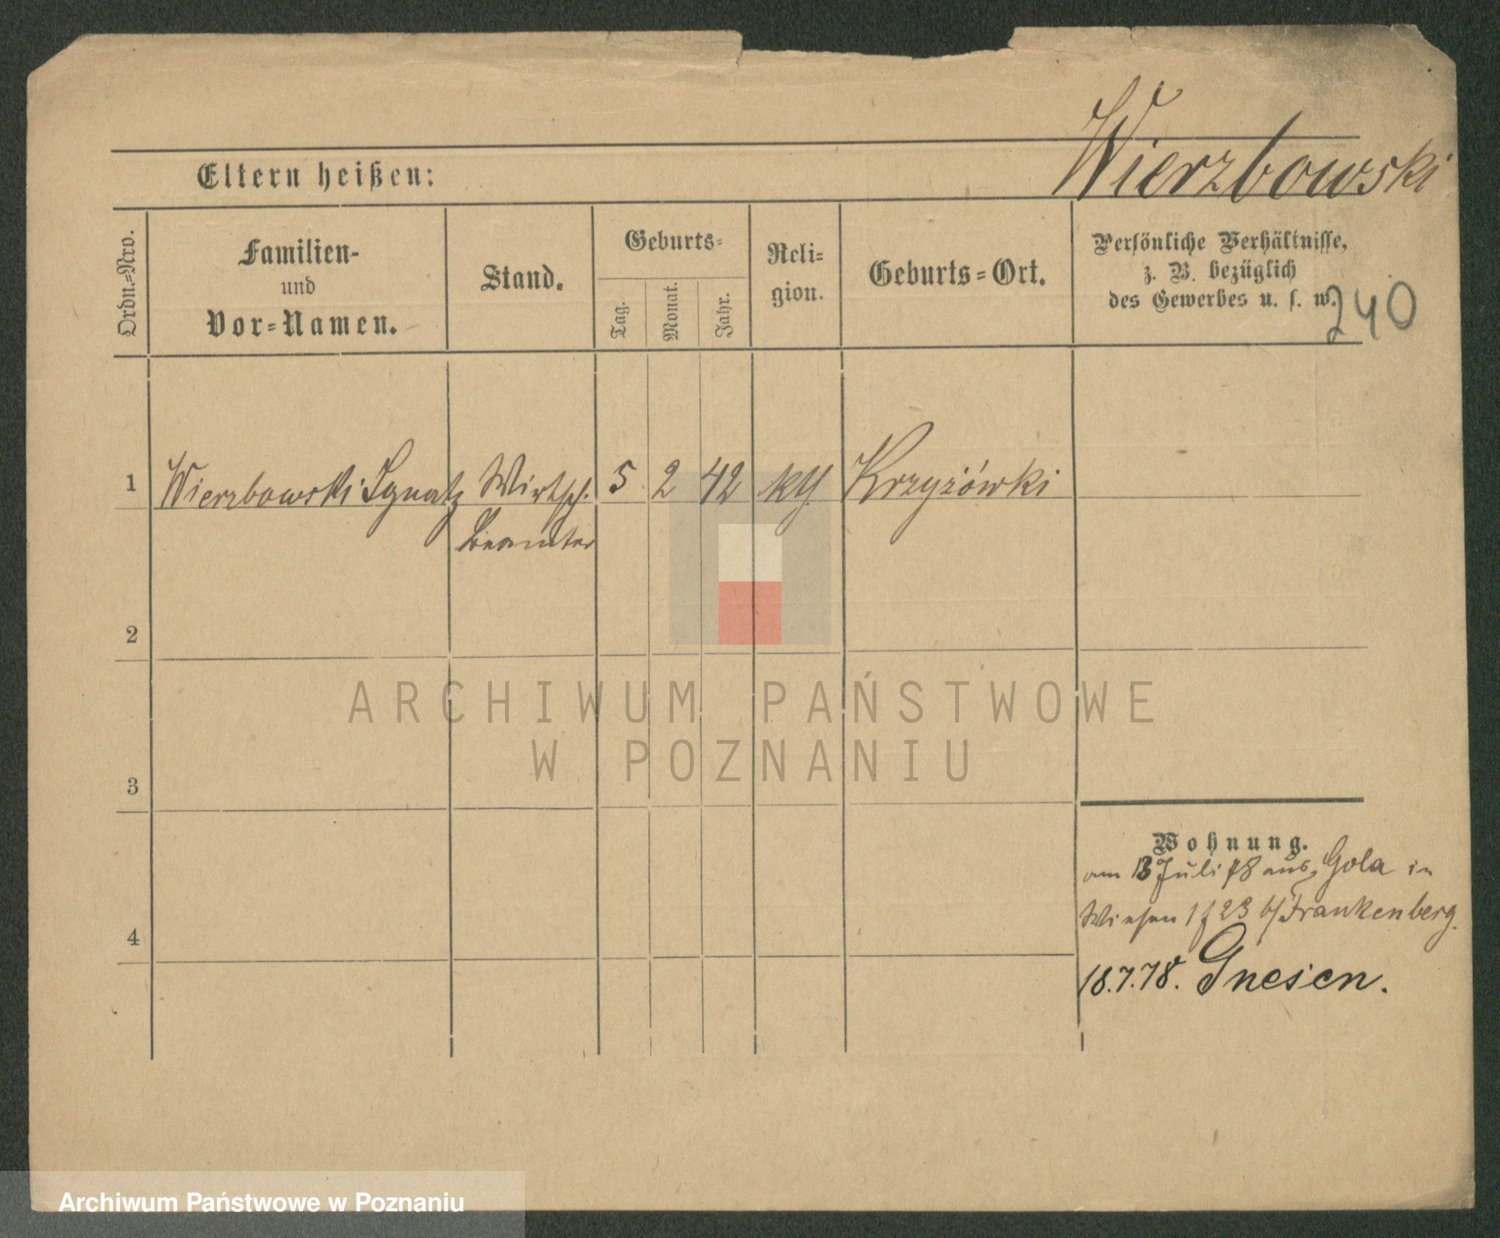 Wierzbowski
Eltern heißen:
Ordn.=Nro.
Familien-
und
Vor=Namen.
Stand.
Geburts=
Tag.
Monat.
Jahr.
Reli=
gion.
Geburts=Ort.
Persönliche Verhältnisse,
z. B. bezüglich
des Gewerbes u. s. w.
240
1 Wierzbowski Ignatz Wirtsch. 5 2 42 kth. Krzyżówki
Beamter
2
3
4
ARCHIWUM PAŃSTWOWE
W POZNANIU
Wohnung.
am 13 Juli 78 aus Gola in
Wiesen 1 23 b/ Frankenberg.
18.7.78. Gnesen.
Archiwum Państwowe w Poznaniu